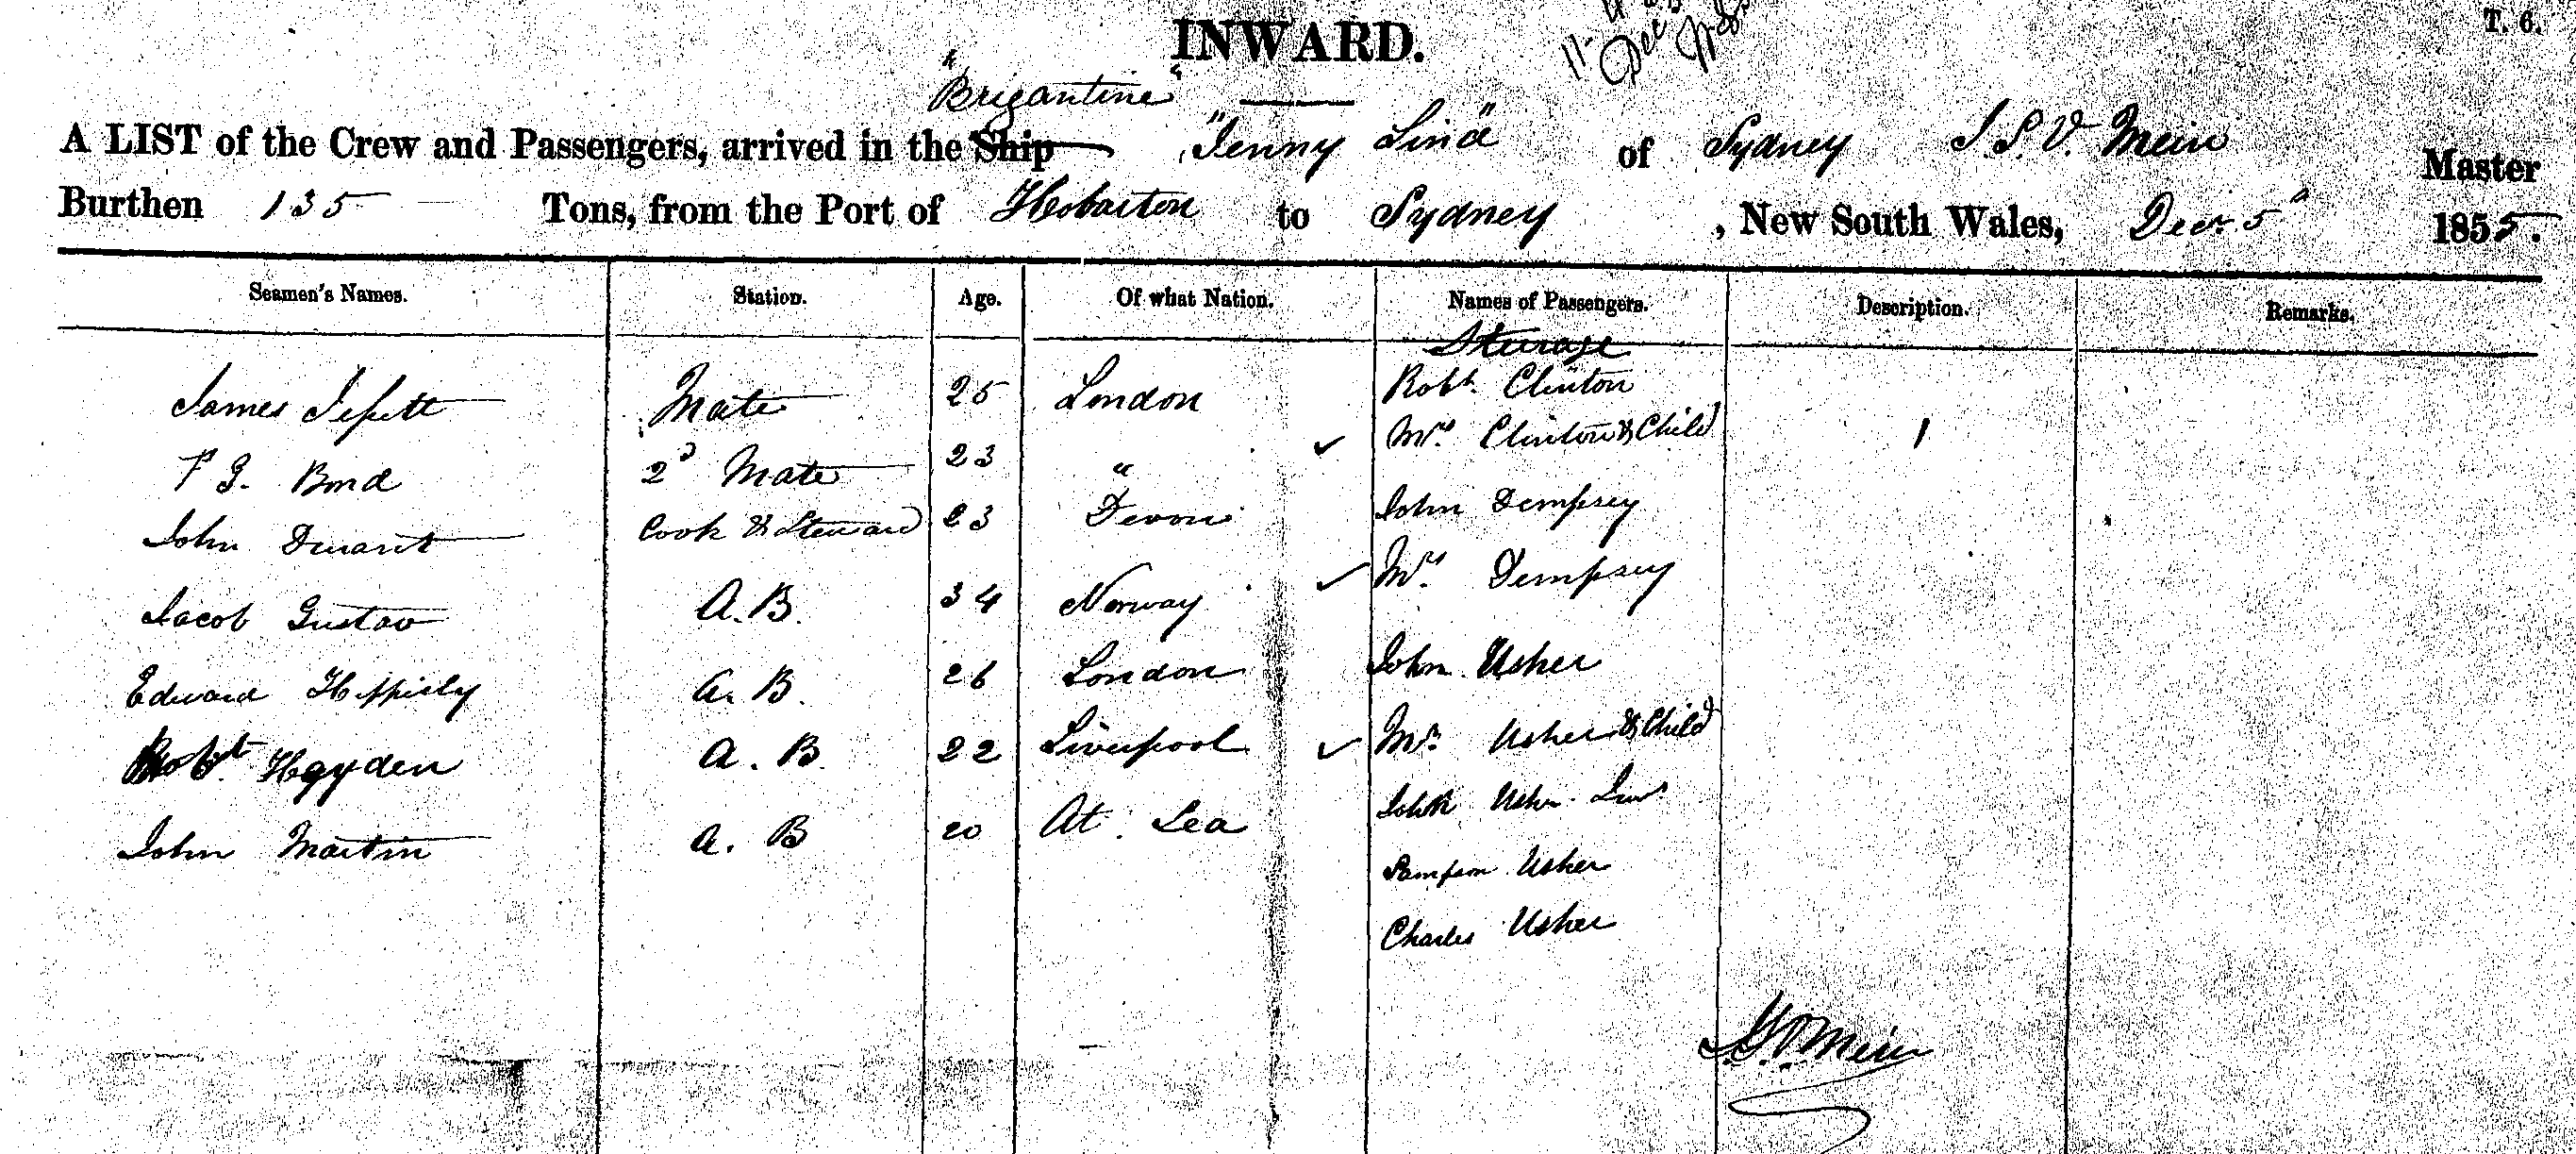 INWARD.
T. 6.
11
Dec
"Brigantine"
A LIST of the Crew and Passengers, arrived in the Ship "Jenny Lind" of Sydney J. S. V. Mein Master
Burthen 135 Tons, from the Port of Hobarton to Sydney, New South Wales, Decr 5" 1855.
Seamen's Names. Station. Age. Of what Nation. Names of Passengers. Description. Remarks.
Steerage
James Mate 25 London Robt. Clinton
Bond 2d Mate 23 " ✓ Mrs. Clinton & Child 1
John Durant Cook & Steward 23 Devon John Dempsey
Jacob Gustav A.B. 34 Norway ✓ Mrs. Dempsey
Edward A. B. 26 London John Usher
Robt. Hayden A. B. 22 Liverpool ✓ Mrs. Usher & Child
John Martin A. B 20 At Sea John Usher Junr
Sampson Usher
Charles Usher
J.S.V. Mein